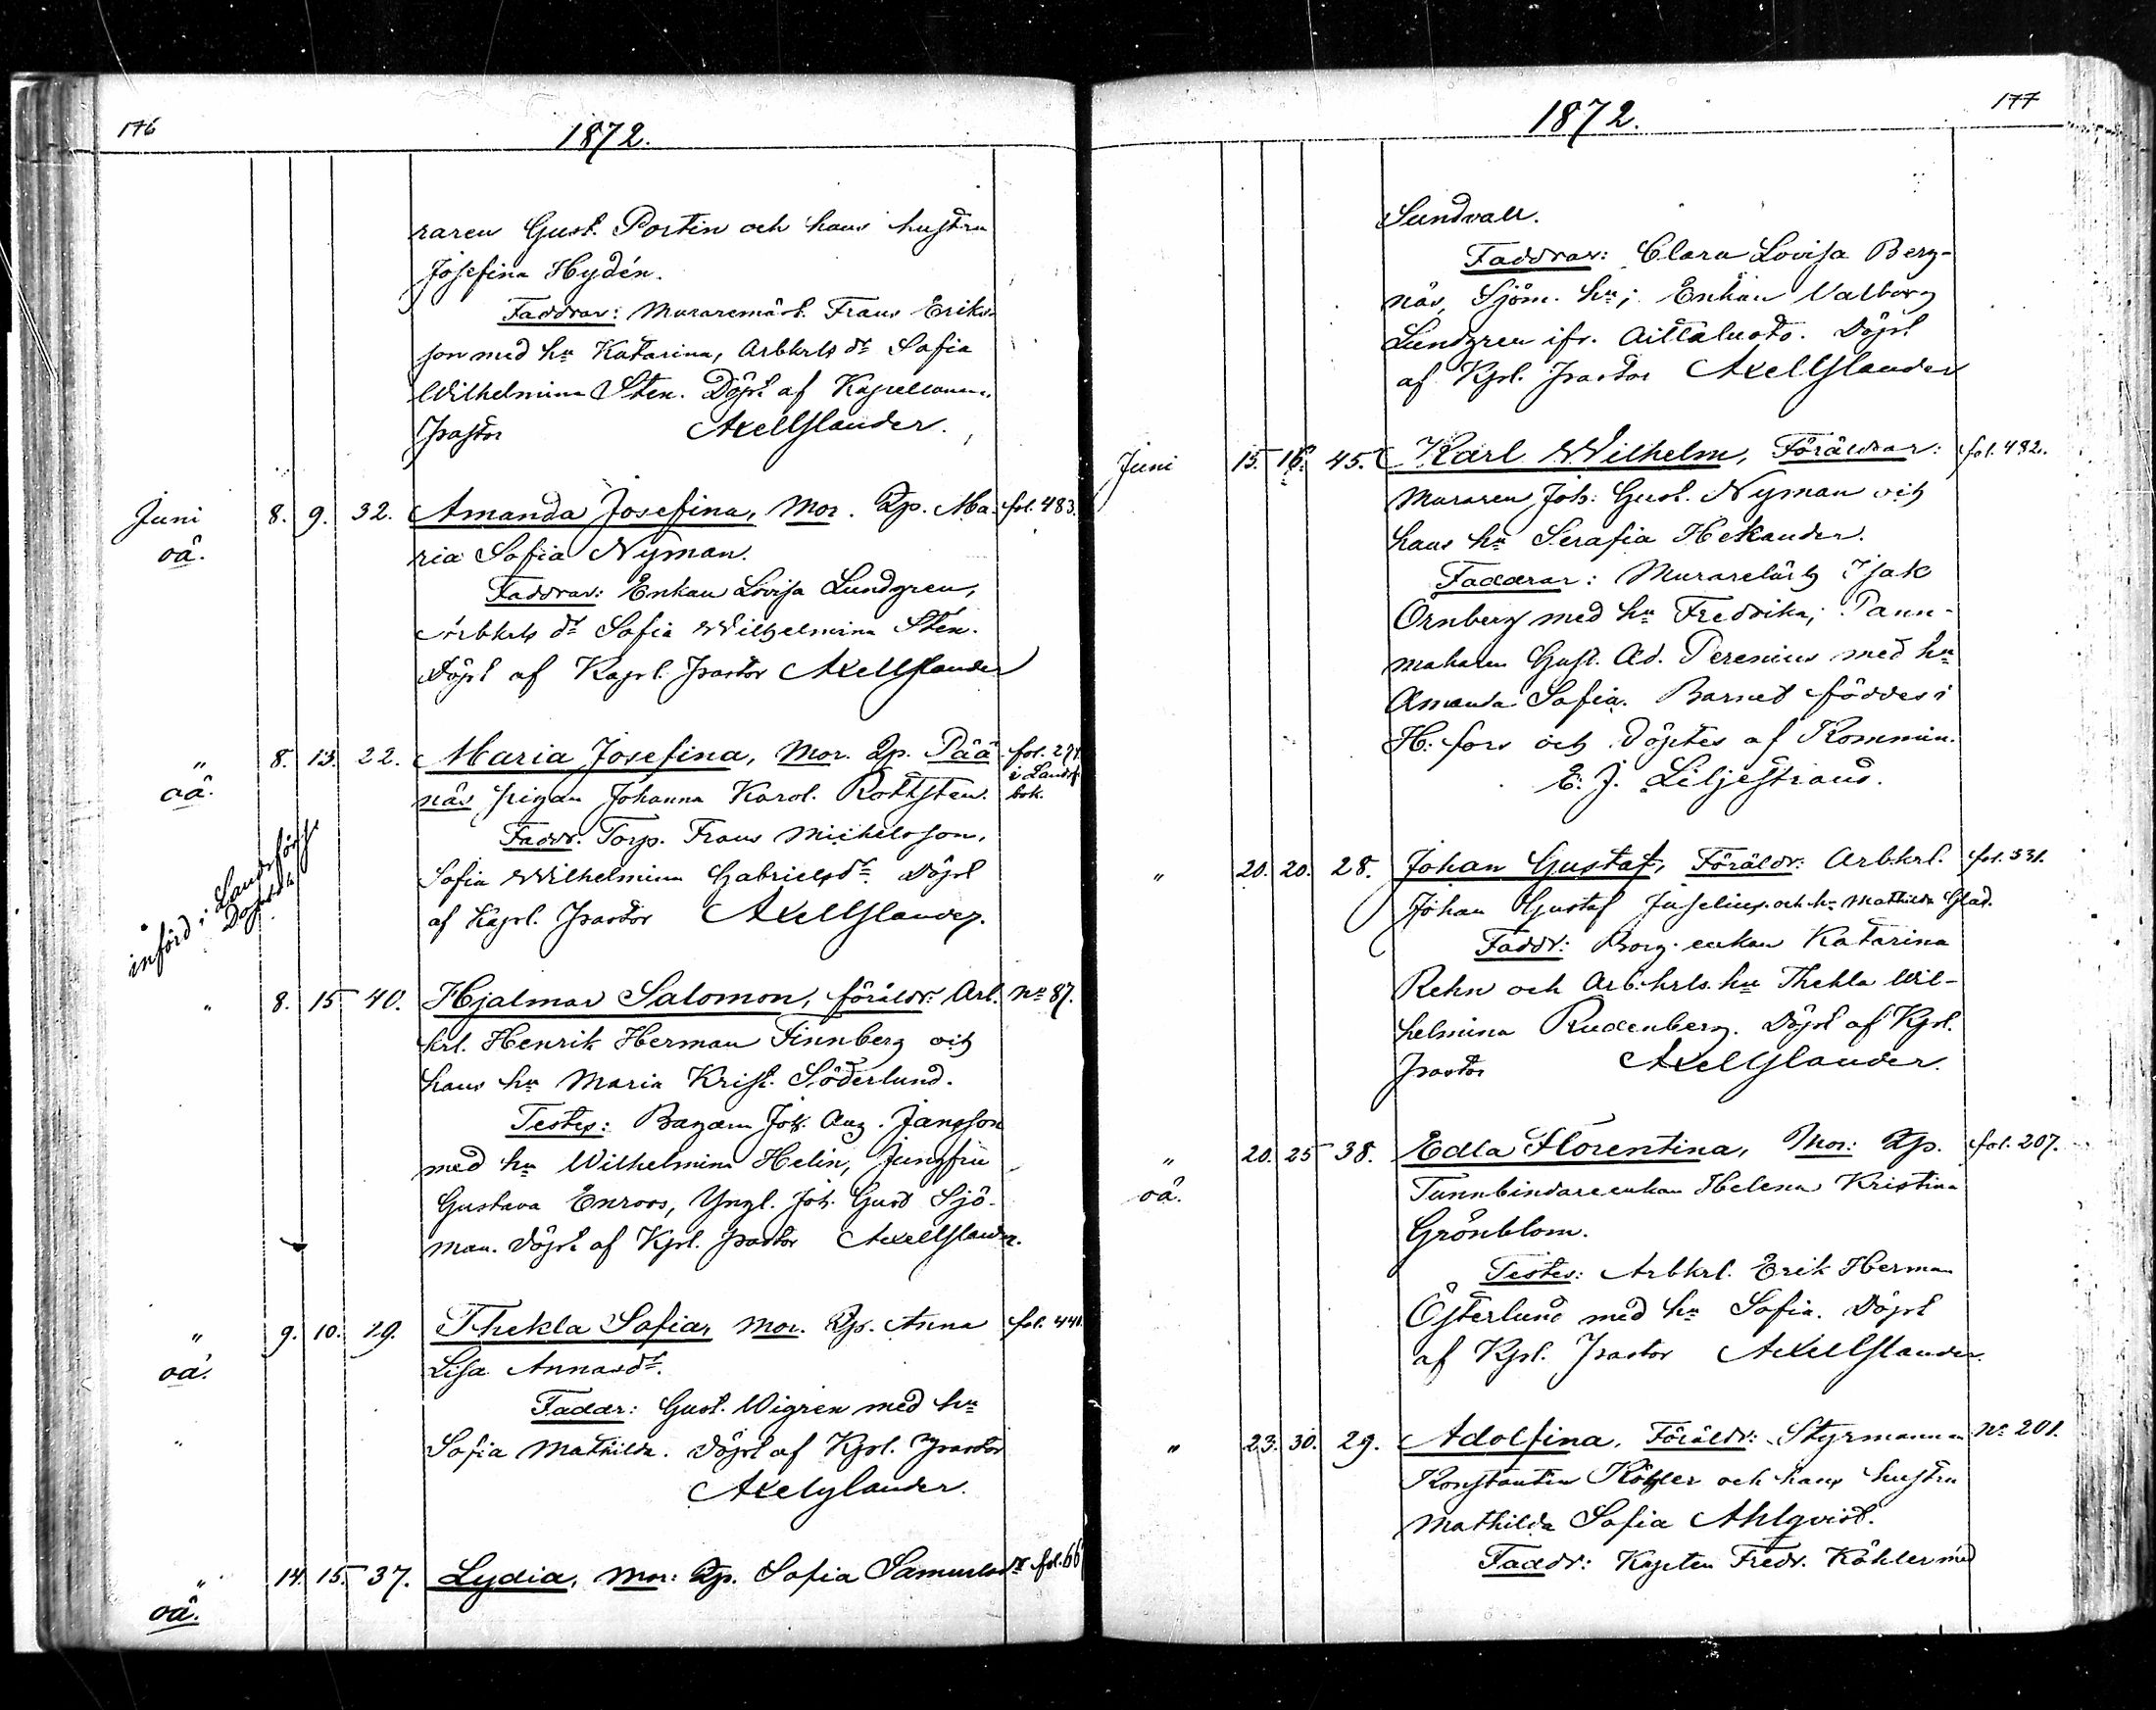 176
1872.
raren Gust. Portin och hans hustru
Josefina Hydén.
Faddrar: Muraremäst. Frans Eriks-
son med hu Katarina, Arbkrls dr Sofia
Wilhelmina Sten. Döpt af Kapellanen,
Pastor Axel Ylander.
Juni 8. 9. 32. Amanda Josefina, Mor. Qp. Ma- fol. 483.
oä. ria Sofia Nyman.
Faddrar: Enkan Lovisa Lundgren,
Arbkrls dr Sofia Wilhelmina Sten.
Döpt af Kapl. Pastor Axel Ylander
" 8. 13. 22. Maria Josefina, Mor. Qp. Pää- fol. 297.
i Landsf.
oä. näs pigan Johanna Karol. Rottsten. bok.
Faddr. Torp. Frans Michelsson,
Sofia Wilhelmina Gabrielsdr. Döpt
af Kapl. Pastor Axel Ylander.
införd i Landsförs.
Dopbok
" 8. 15 40. Hjalmar Salomon, föräldr: Arb. No 87.
krl. Henrik Herman Finnberg och
hans hu Maria Krist. Söderlund.
Testes: Bagaren Joh. Aug. Jansson
med hu Wilhelmina Helin, Jungfru
Gustava Enroos, Yngl. Joh. Gust Sjö-
man. Döpt af Kpl. Pastor Axel Ylander.
" 9. 10. 29. Thekla Sofia, Mor. Qp. Anna fol. 441.
oä. Lisa Annasdr.
Faddr: Gust. Wigren med hu
Sofia Mathilda. Döpt af Kpl. Pastor
Axel Ylander.
" 14. 15. 37. Lydia, Mor: Qp. Sofia Samuelsdr fol. 66
oä.
177
1872.
Sundvall.
Faddrar: Clara Lovisa Berg-
näs, Sjöm. hu; Enkan Valborg
Lundgren ifr. Aittaluoto. Döpt
af Kpl. Pastor Axel Ylander
Juni 15. 16. 45. Karl Wilhelm, Föräldrar: fol. 482.
Muraren Joh. Gust. Nyman och
hans hu Serafia Hekander.
Faddrar: Murarelärlg Isak
Ornberg med hu Fredrika; Pann-
makaren Gust. Ad. Perenius med hu
Amanda Sofia. Barnet föddes i
H:fors och döptes af Kommin.
E. J. Liljestrand.
" 20. 20. 28. Johan Gustaf, Föräldr: Arbkrl. fol. 331.
Johan Gustaf Juselius och hu Mathilda Glad.
Faddr: Borg. enkan Katarina
Rehn och Arb.krls. hu Thekla Wil-
helmina Rudenberg. Döpt af Kpl.
Pastor Axel Ylander.
" 20. 25 38. Edla Florentina, Mor: Qp. fol. 207.
oä. Tunnbindareenkan Helena Kristina
Grönblom.
Testes: Arbkrl. Erik Herman
Österlund med hu Sofia. Döpt
af Kpl. Pastor Axel Ylander.
" 23. 30. 29. Adolfina. Föräldr: Styrmannen No 201.
Konstantin Köhler och hans hustru
Mathilda Sofia Ahlqvist.
Faddr: Kapten Fredr. Köhler med